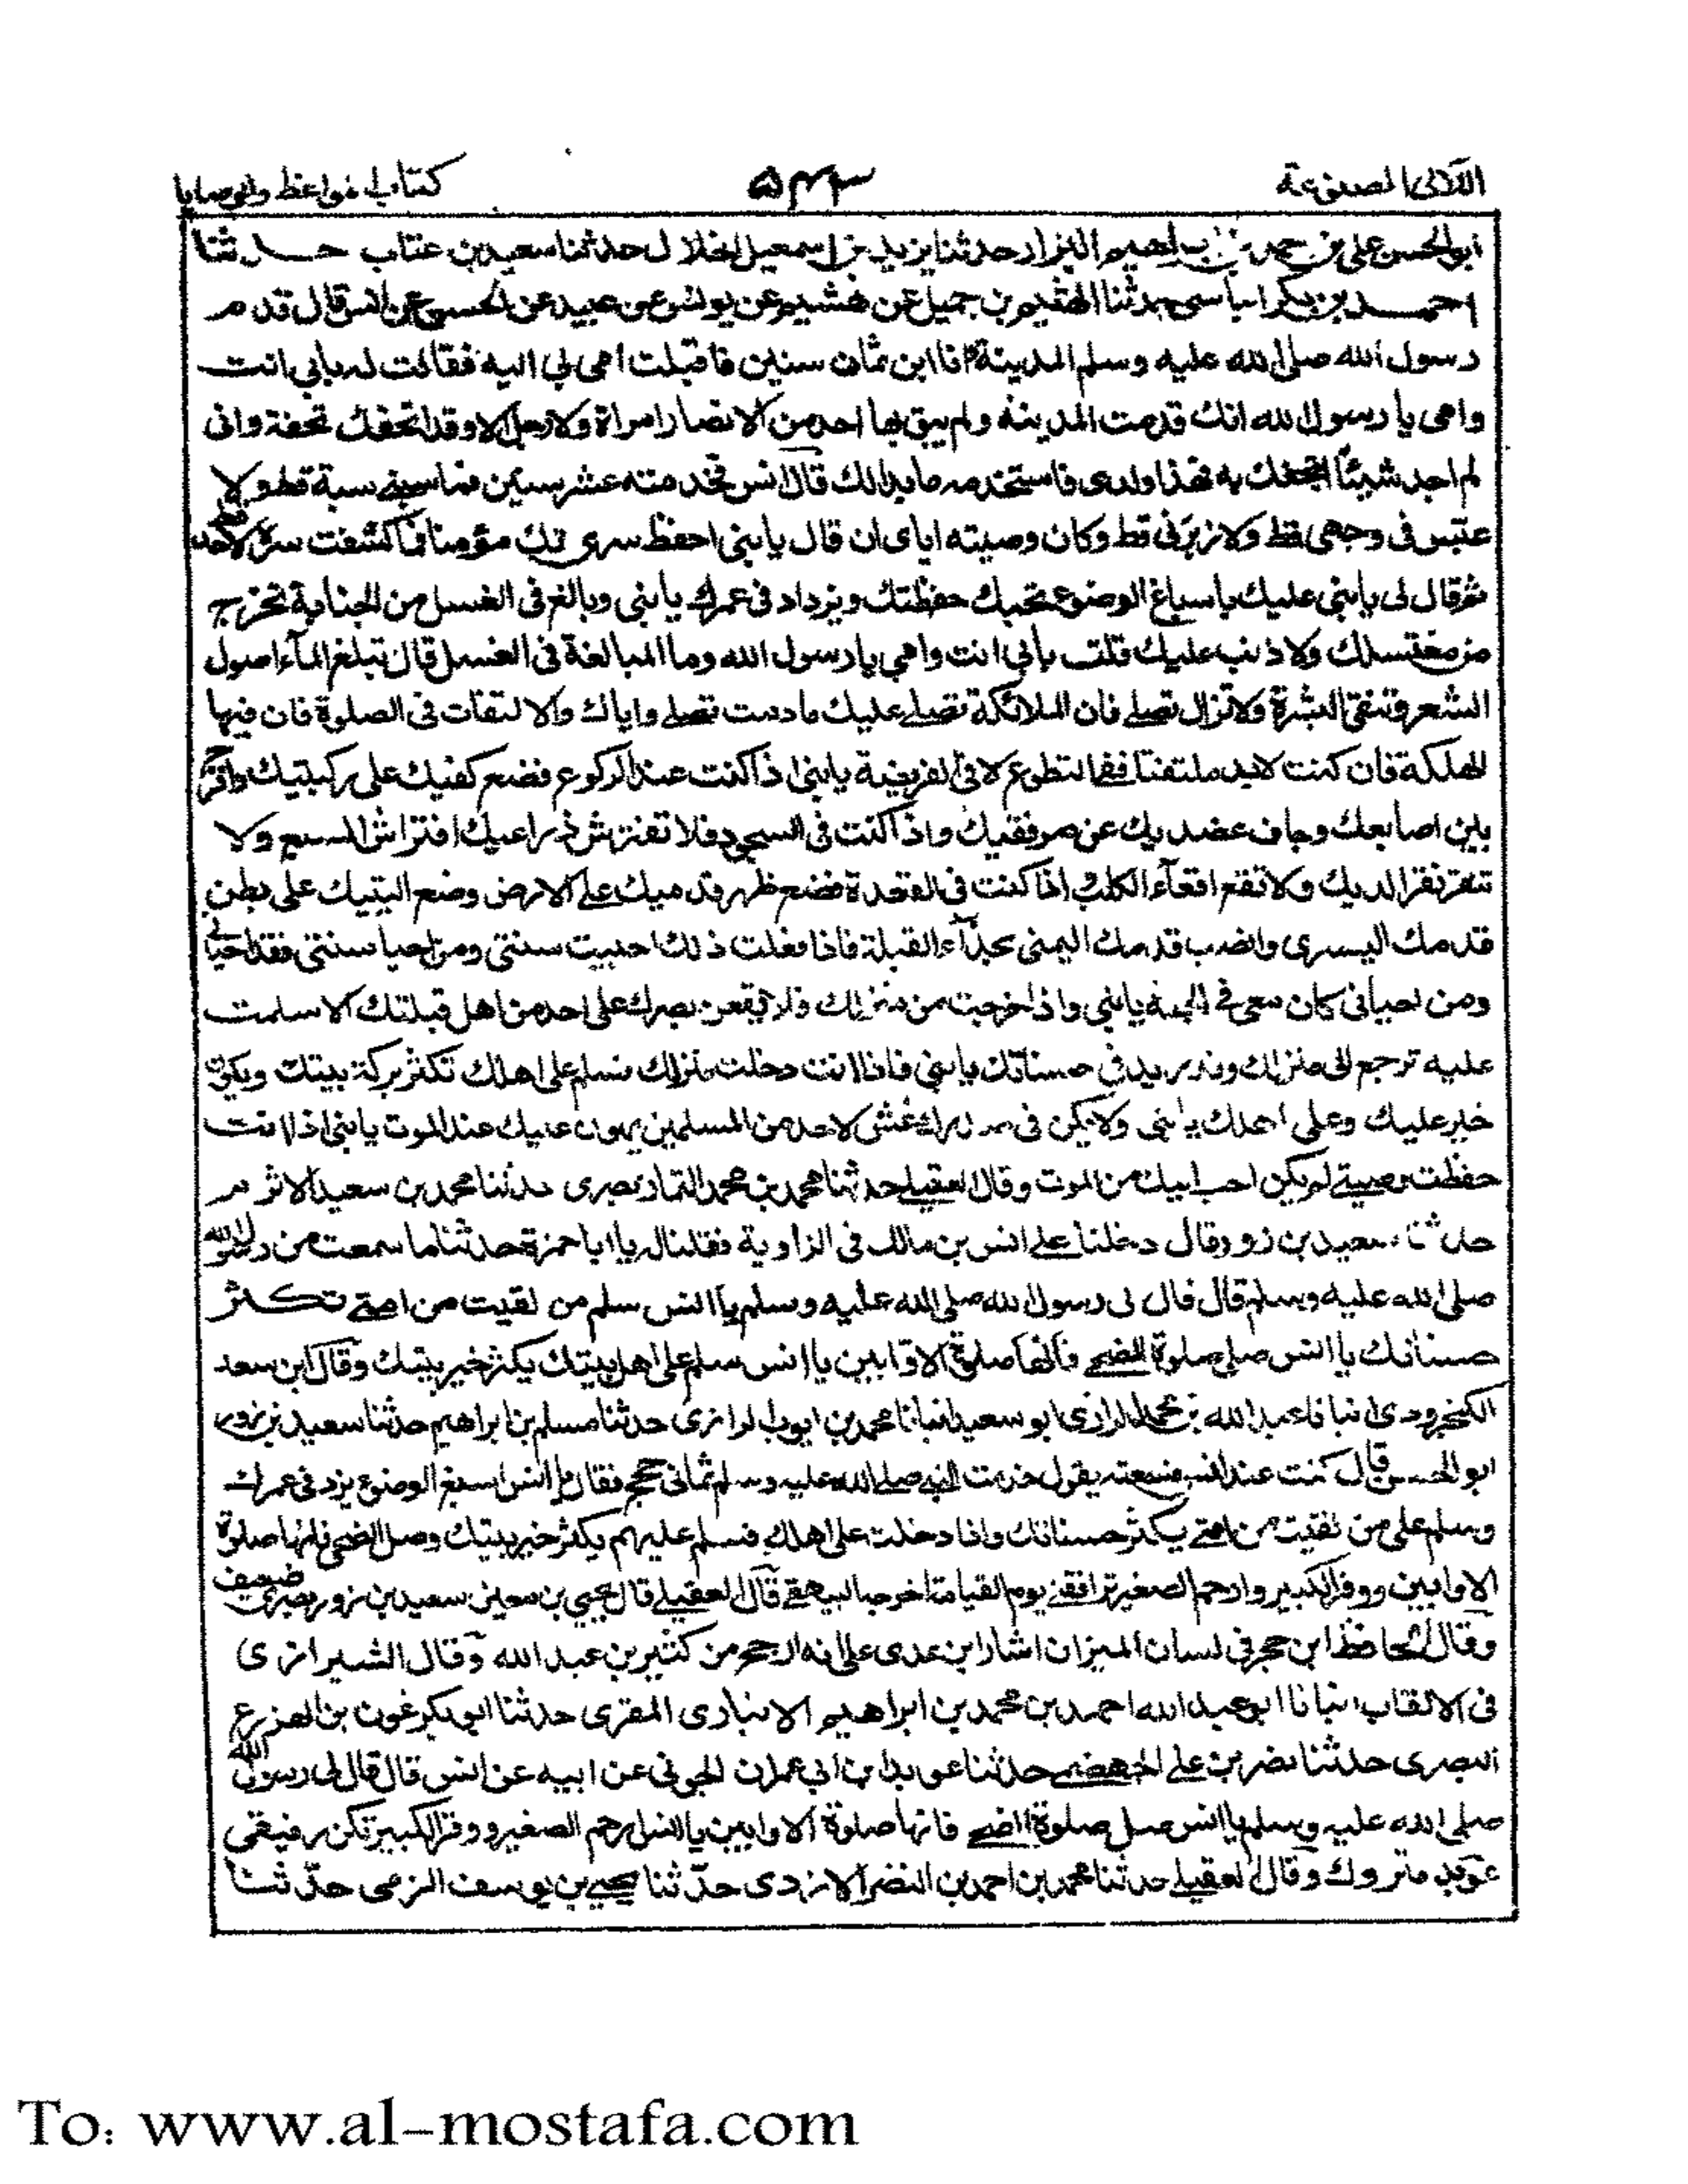 اللآلئ المصنوعة ۵۴۳ كتاب المواعظ والوصايا
ابو الحسن على بن ابراهيم البزار حدثنا يزيد بن اسمعيل الخلال حدثنا سعيد بن عتاب حدثنا
احمد بن بكر حدثنا الهيثم بن جميل عن هشيم عن يونس بن عبيد عن الحسن عن انس قال قدم
رسول الله صلى الله عليه وسلم المدينة وانا ابن ثمان سنين فاقبلت امى بى اليه فقالت له بابى انت
وامى يا رسول الله انك قدمت المدينة ولم يبق بها احد من الانصار امراة ولا رجل الا وقد اتحفك تحفة وانى
لم اجد شيئا اتحفك به فهذا ولدى فاستخدمه ما بدا لك قال انس فخدمته عشر سنين فما سبنى سبة قط ولا
عبس فى وجهى قط ولا زبرنى قط وكان وصيته اياى ان قال يا بنى احفظ سرى تك مؤمنا فما كشفت سره لاحد
ثم قال لى يا بنى عليك باسباغ الوضوء تحبك حفظتك ويزداد فى عمرك يا بنى وبالغ فى الغسل من الجنابة تخرج
من مغتسلك ولا ذنب عليك قلت بأبى انت وامى يا رسول الله وما المبالغة فى الغسل قال تبلغ المآء اصول
الشعر وتنقى البشرة ولا تزال تصلى فان الملائكة تصلى عليك ما دمت تصلى واياك والالتفات فى الصلوة فان فيها
الهلكة فان كنت لابد ملتفتا ففى التطوع لا فى الفريضة يا بنى اذا كنت عند الركوع فضع كفيك على ركبتيك وافرج
بين اصابعك وجاف عضديك عن مرفقيك واذا كنت فى السجود فلا تفترش ذراعيك افتراش السبع ولا
تنقر نقر الديك ولا تقع اقعآء الكلب واذا كنت فى القعدة فضع ظهر قدميك على الارض وضع اليتيك على بطن
قدمك اليسرى وانصب قدمك اليمنى بحذآء القبلة فاذا فعلت ذلك احييت سنتى ومن احيا سنتى فقد احيانى
ومن احيانى كان معى فى الجنة يا بنى واذا خرجت من منزلك فلا يقعن بصرك على احد من اهل قبلتك الا سلمت
عليه ترجع الى منزلك وقد زيد فى حسناتك يا بنى فاذا انت دخلت منزلك فسلم على اهلك تكثر بركة بيتك ويكون
خير عليك وعلى اهلك يا بنى ولا يكن فى صدرك غش لاحد من المسلمين يهون عليك عند الموت يا بنى اذا انت
حفظت وصيتى لم يكن احب اليك من الموت وقال العقيلى حدثنا محمد بن محمد التمار بصرى حدثنا محمد بن سعيد الاثرم
حدثنا سعيد بن زور قال دخلنا على انس بن مالك فى الزاوية فقلنا له يا ابا حمزة حدثنا ما سمعت من رسول الله
صلى الله عليه وسلم قال قال لى رسول الله صلى الله عليه وسلم يا انس سلم من لقيت من امتى تكثر
حسناتك يا انس صلى صلوة الضحى فانها صلوة الاوابين يا انس سلم على اهل بيتك يكثر خير بيتك وقال ابن سعد
الكنجرودى انبانا عبد الله بن محمد الرازى ابو سعيد انبانا محمد بن ايوب الرازى حدثنا مسلم بن ابراهيم حدثنا سعيد بن زور
ابو الحسن قال كنت عند انس فسمعته يقول خدمت النبى صلى الله عليه وسلم ثمانى حجج فقال يا انس اسبغ الوضوء يزد فى عمرك
وسلم على من لقيت من امتى يكثر حسناتك واذا دخلت على اهلك فسلم عليهم يكثر خير بيتك وصل الضحى فانها صلوة
الاوابين ووقر الكبير وارحم الصغير ترافقنى يوم القيامة اخرجه البيهقى قال العقيلى قال يحيى بن معين سعيد بن زور بصرى ضعيف
وقال الحافظ ابن حجر فى لسان الميزان اشار ابن عدى على انه ارجح من كثير بن عبد الله وقال الشيرازى
فى الالقاب انبانا ابو عبد الله احمد بن محمد بن ابراهيم الانبارى المقرى حدثنا ابو بكر عون بن المزرع
البصرى حدثنا نصر بن على الجهضمى حدثنا عوبد بن ابى عمران الجونى عن ابيه عن انس قال قال لى رسول الله
صلى الله عليه وسلم يا انس صل صلوة الضحى فانها صلوة الاوابين يا انس ارحم الصغير ووقر الكبير تكن رفيقى
عوبد متروك وقال العقيلى حدثنا محمد بن احمد بن النضر الازدى حدّثنا يحيى بن يوسف الزمى حدّثنا
To: www.al-mostafa.com